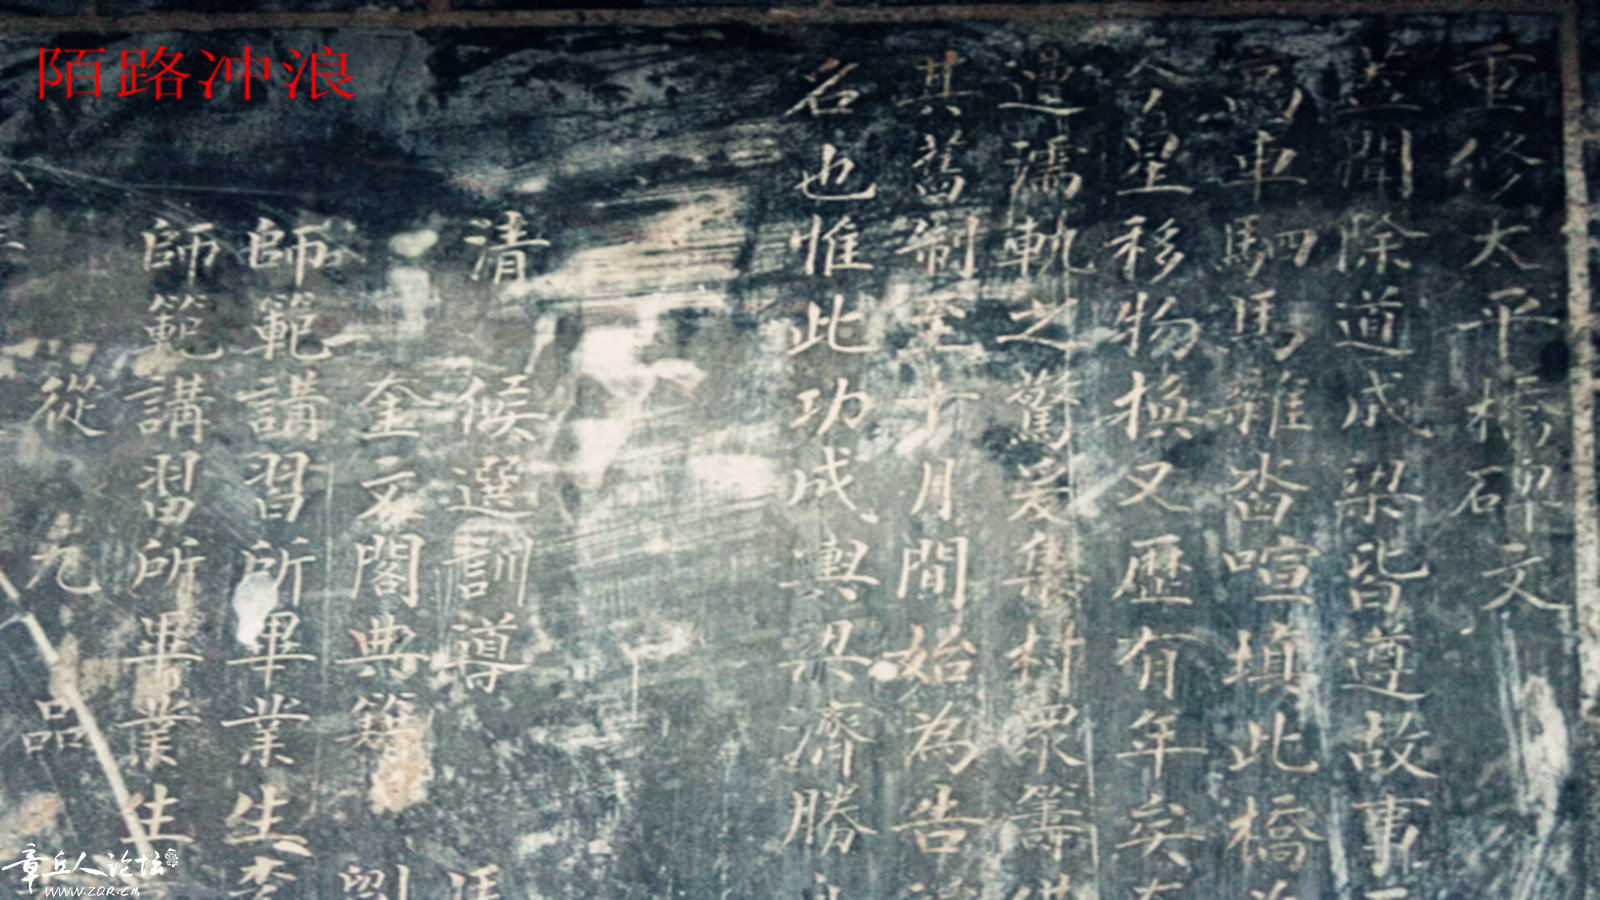 陌路冲浪
重修太平橋碑文
盖聞除道成梁皆遵故事
車駟馬雜沓喧填此橋
今星移物換又歷有年矣
遭濡軌之驚爰集村眾籌
其舊制至十月間始為告
名也惟此功成輿梁濟勝
清候選訓導
奎文閣典籍 劉
師範講習所畢業生李
師範講習所畢業生
從九品
章丘人论坛
www.ZQR.CM